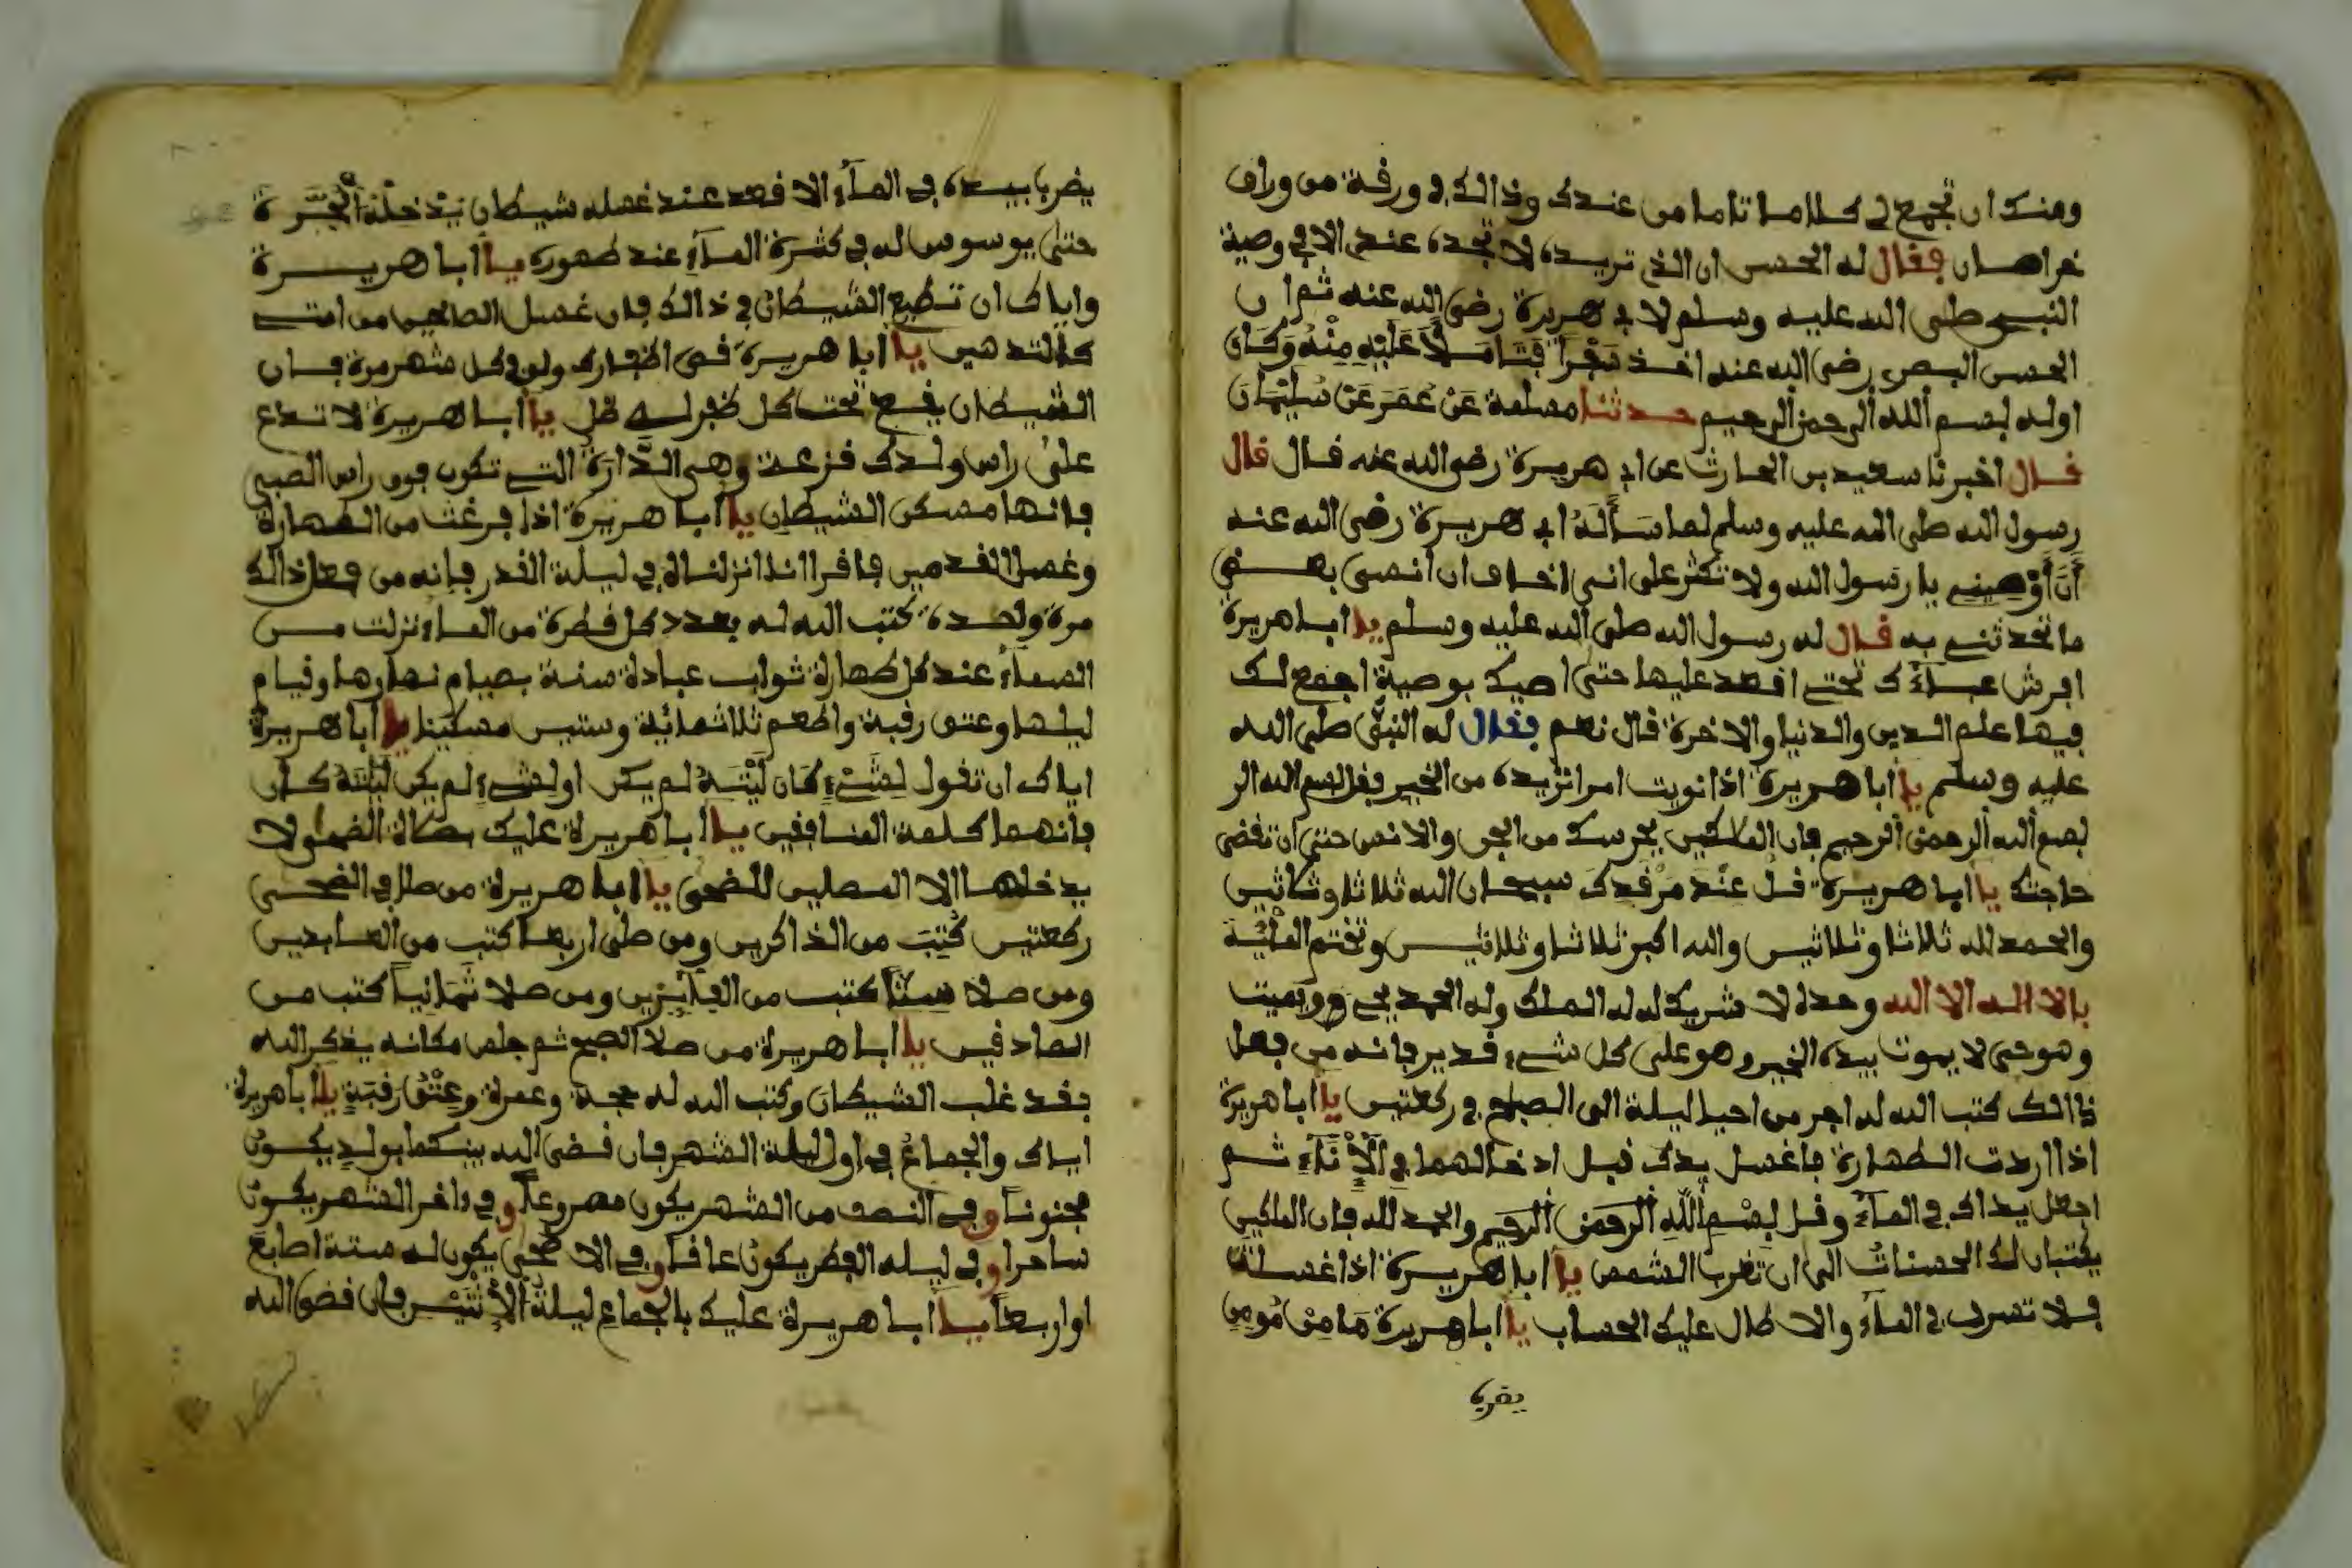 ومنك ان تجمع لي كلاما تاما من عندك وذالك في ورقة من وراق
خراسان فقال له الحسن ان الذي تريده لا تجده عندي الا في وصية
النبي صلى الله عليه وسلم لابي هريرة رضي الله عنه ثم ان
الحسن البصري رضي الله عنه اخذ عليه منه وكان
اوله بسم الله الرحمن الرحيم حدثنا مسلمة عن عمر عن سليمان
قال اخبرنا سعيد بن الحارث عن ابي هريرة رضي الله عنه قال قال
رسول الله صلى الله عليه وسلم لما سأله ابي هريرة رضي الله عنه
أن أوصيني يا رسول الله ولا تكثر على انني اخاف ان انسى بعض
ما تحدثني به قال له رسول الله صلى الله عليه وسلم يا ابا هريرة
افرش عباءك تحتي اقعد عليها حتى اصيك بوصية اجمع لك
فيها علم الدين والدنيا والاخرة قال نعم فقال له النبي صلى الله
عليه وسلم يا ابا هريرة اذا نويت امرا تريده من الخير فقل بسم الله الر
بسم الله الرحمن الرحيم فان الملكين يحرسك من الجن والانس حتى ان تقضى
حاجتك يا ابا هريرة قل عند مرقدك سبحان الله ثلاثا وثلاثين
والحمد لله ثلاثا وثلاثين والله اكبر ثلاثا وثلاثين وتختم المائة
بالا اله الا الله وحده لا شريك له له الملك وله الحمد يحي ويميت
وهو حي لا يموت بيده الخير وهو على كل شيء قدير فانه من فعل
ذالك كتب الله له اجر من احيا ليلة الى الصباح في ركعتين يا ابا هريرة
اذا اردت الطهارة فاغسل يدك قبل ادخالهما في الإناء ثم
اجعل يداك في الماء وقل بسم الله الرحمن الرحيم والحمد لله فان الملكين
يكتبان لك الحسنات الى ان تغرب الشمس يا ابا هريرة اذا غسلت
فلا تسرف في الماء والا طال عليك الحساب يا ابا هريرة ما من مومن
يضرب
يضرب بيده في الماء الا قعد عند غسله شيطان
حتى يوسوس له في كثرة الماء عند طهوره يا ابا هريرة
واياك ان تطيع الشيطان في ذالك فان غسل الصالحين من امتي
كالتدهين يا ابا هريرة قص اظفارك ولو في كل شهر مرة فان
الشيطان يقع تحت كل ظفر له ظل يا ابا هريرة لا تدع
على راس ولدك قزعة وهي الدارة التي تكون فوق راس الصبي
فانها مسكن الشيطان يا ابا هريرة اذا فرغت من الطهارة
وغسل القدمين فاقرا انا انزلناه في ليلة القدر فانه من فعل ذالك
مرة واحدة كتب الله له بعدد كل قطرة من الماء نزلت من
السماء عند كل طهارة ثواب عبادة سنة بصيام نهارها وقيام
ليلها وعتق رقبة واطعم ثلاثمائية وستين مسكينا يا ابا هريرة
اياك ان تقول لشيء كان ليته لم يكن او لشيء لم يكن ليته كان
فانهما كلمة المنافقين يا ابا هريرة عليك بصلاة الضحى ولا
يدخلها الا المصلين للضحى يا ابا هريرة من صلى في الضحى
ركعتين كتب من الذاكرين ومن صلى اربعا كتب من العابدين
ومن صلا ستا كتب من الفايزين ومن صلا ثمانيا كتب من
الصادقين يا ابا هريرة من صلا الصبح ثم جلس مكانه يذكر الله
فقد غلب الشيطان وكتب الله له حجة وعمرة وعتق رقبة يا ابا هريرة
اياك والجماع في اول ليلة الشهر فان قضى الله بينكما بولد يكون
مجنونا وفي النصف من الشهر يكون مصروعا وفي داخر الشهر يكون
ساحرا وفي ليله الفطر يكون عاقا وفي الاضحى يكون له ستة اصابع
او اربعا يا ابا هريرة عليك بالجماع ليلة الإثنين فان قضى الله